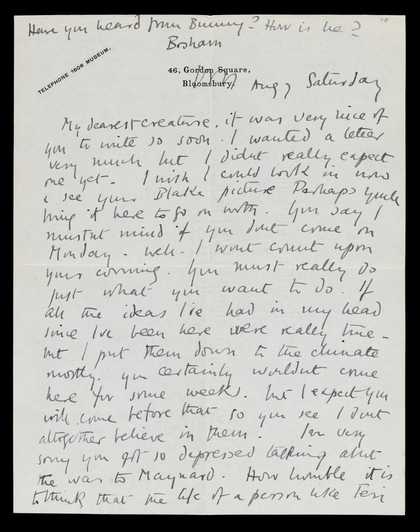 Have you heard from Bunny? How is he?
Bosham
TELEPHONE 1608 MUSEUM.
46, Gordon Square,
Bloomsbury.
Aug 7 Saturday
My dearest creature, it was very nice of
you to write so soon. I wanted a letter
very much but I didnt really expect
one yet. I wish I could look in now
& see your Blake picture Perhaps youll
bring it here to go on with. You say I
mustnt mind if you dont come on
Monday - well - I wont count upon
your coming. You must really do
just what you want to do. If
all the ideas I've had in my head
since I've been here were really true -
but I put them down to the climate
mostly. you certainly wouldnt come
here for some weeks. but I expect you
will come before that so you see I dont
altogether believe in them. I'm very
sorry you got so depressed talking abt
the war to Maynard. How horrible it is
to think that the life of a person like Feri